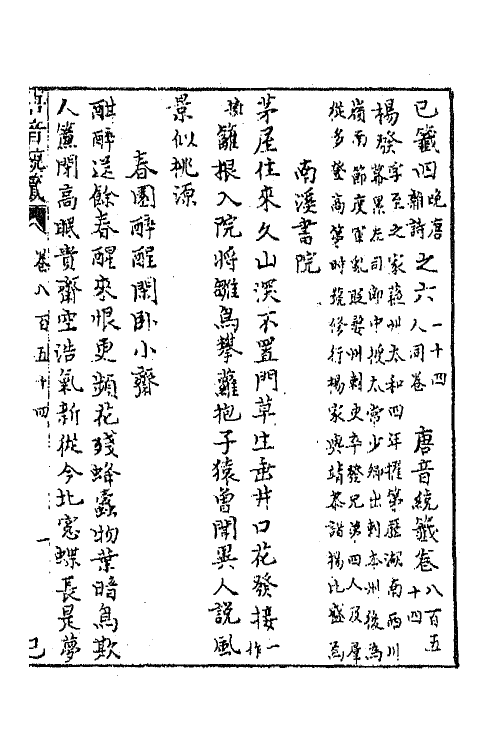 已籤四晚唐朝詩之六一十四人同卷　唐音統籤卷八百五十四
楊發字至之家蘇州太和四年擢第歷湖南西川
幕累左司郎中授太常少卿出刺本州後為
嶺南節度軍亂貶婺州刺史卒發兄弟四人及羣
從多登高第時號修行楊家與靖恭諸楊比盛
南溪書院
茅屋住來久山深不置門草生垂井口花發接一作
籬根入院將雛鳥攀蘿抱子猿曾聞異人說風
景似桃源
春園醉醒閑臥小齋
酣醉送餘春醒來恨更頻花殘蜂蠹物葉暗鳥欺
人簾閉高眠貴齋空浩氣新從今北窻蝶長是夢
唐音統籤
卷八百五十四
一
已